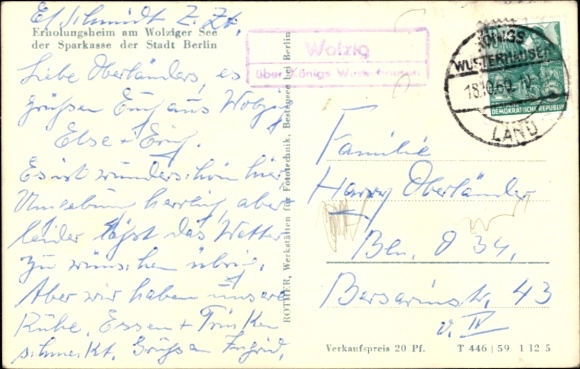 E. Schmidt z. Zt.
Erholungsheim am Wolziger See
der Sparkasse der Stadt Berlin
Liebe Oberländers, es
grüßen Euch aus Wolzig
Else + Erich.
Es ist wunderschön hier
Umgebung herrlich, aber
leider läßt das Wetter
zu wünschen übrig.
Aber wir haben unsere
Ruhe, Essen + Trinken
schmeckt. Grüßen Ingrid,
ROTHER, Werkstätten für Fototechnik, Bestensee bei Berlin
Wolzig
über Königs Wusterhausen
KÖNIGS
WUSTERHAUSEN
18.10.60
LAND
DEUTSCHE
DEMOKRATISCHE REPUBLIK
Familie
Harry Oberländer
Bln. O 34,
Bersarinstr. 43
v. IV
Verkaufspreis 20 Pf. T 446 | 59 1 12 5